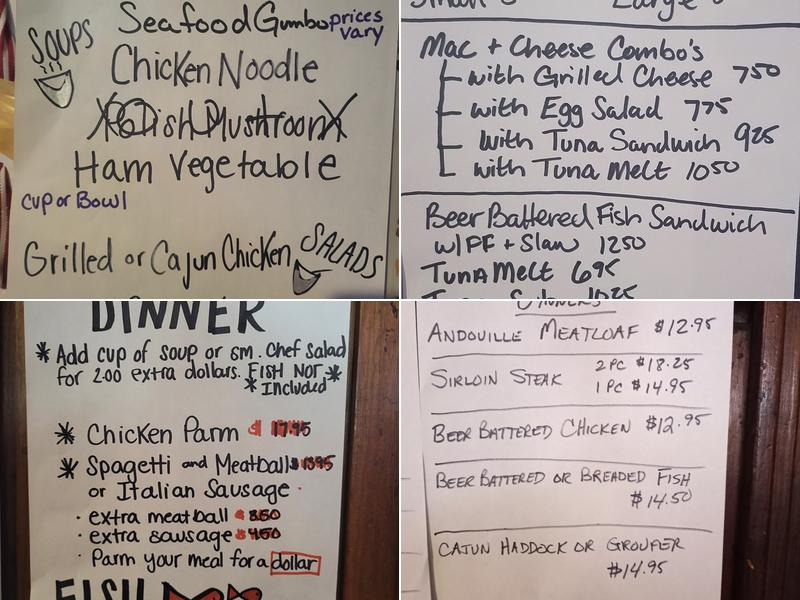 SOUPS
Seafood Gumbo prices vary
Chicken Noodle
Ham Vegetable
Cup or Bowl
Grilled or Cajun Chicken
SALADS
Mac + Cheese Combo's
with Grilled Cheese 750
with Egg Salad 775
with Tuna Sandwich 925
with Tuna Melt 1050
Beer Battered Fish Sandwich
w/ FF + Slaw 1250
Tuna Melt 695
DINNER
* Add cup of soup or sm. Chef Salad
for 2.00 extra dollars. FISH NOT *
* Included
* Chicken Parm $ 17.95
* Spagetti and Meatball
or Italian Sausage
· extra meatball
· extra sausage $ 4.50
· Parm your meal for a dollar
FISH
DINNERS
ANDOUILLE MEATLOAF $12.95
SIRLOIN STEAK 2 PC $18.25
1 PC $14.95
BEER BATTERED CHICKEN $12.95
BEER BATTERED OR BREADED FISH
$14.50
CAJUN HADDOCK OR GROUPER
$14.95